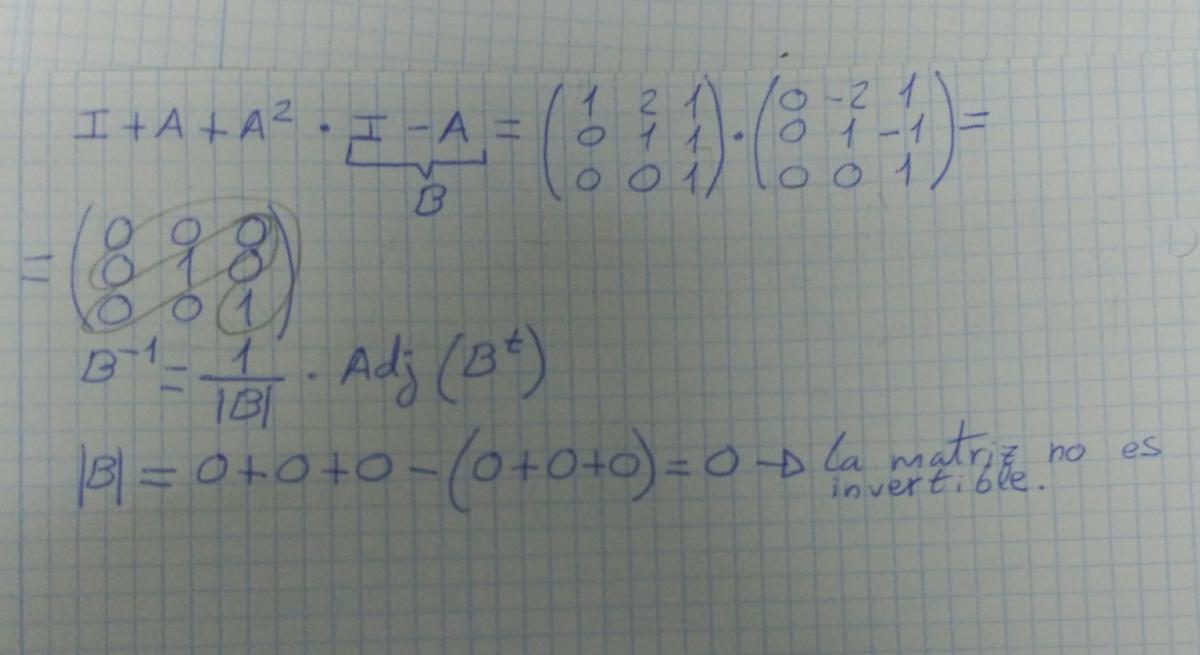 I + A + A² · I - A = (1 2 1 / 0 1 1 / 0 0 1) · (0 -2 1 / 0 1 -1 / 0 0 1) =
B
= (0 0 0 / 0 1 0 / 0 0 1)
B⁻¹ = 1/|B| · Adj (Bᵗ)
|B| = 0+0+0-(0+0+0)=0 → La matriz no es
invertible.